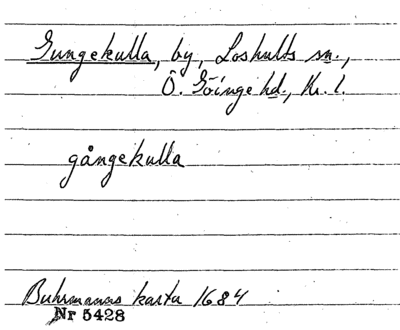 Gungekulla, by, Loshults sn.,
Ö. Göinge hd., Kr. l.
gångekulla
Buhrmanns karta 1684
Nr 5428